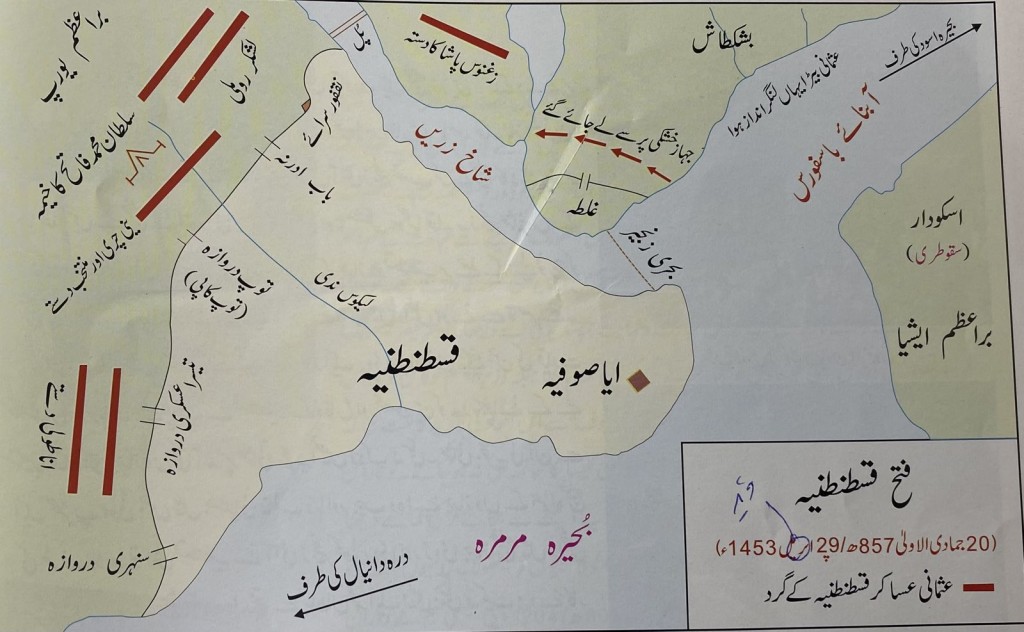 براعظم یورپ
لشکر روٹی
پل
زغنوس پاشا کا دستہ
بشکطاش
بحیرہ اسود کی طرف
عثمانی بیڑا یہاں لنگر انداز ہوا
آبنائے باسفورس
جہاز خشکی پر سے لے جائے گئے
سلطان محمد فاتح کا خیمہ
تفتور سرائے
باب ادرنہ
شاخ زریں
غلطہ
بحری زنجیر
اسکودار
(سقوطری)
براعظم ایشیا
ینی چری اور منتخب دستے
توپ دروازہ
(توپ کاپی)
لیکوس ندی
قسطنطنیہ
ایاصوفیہ
اناطولی دستے
تیسرا عسکری دروازہ
سنہری دروازہ
درہ دانیال کی طرف
بُحیرہ مرمرہ
فتح قسطنطنیہ
(20 جمادی الاولیٰ 857ھ/29 اپریل 1453ء)
عثمانی عساکر قسطنطنیہ کے گرد